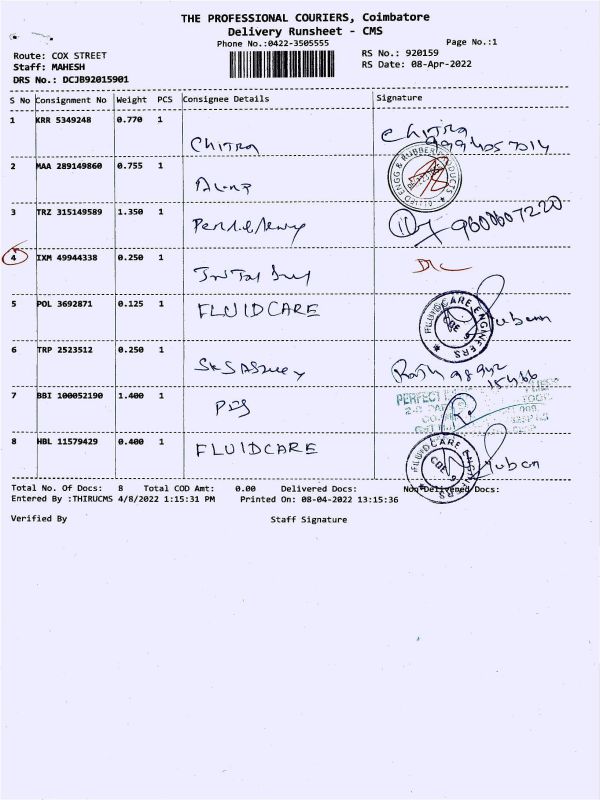 THE PROFESSIONAL COURIERS, Coimbatore
Delivery Runsheet - CMS
Phone No.:0422-3505555
Page No.:1
Route: COX STREET
RS No.: 920159
Staff: MAHESH
RS Date: 08-Apr-2022
DRS No.: DCJB92015901
S No Consignment No Weight PCS Consignee Details Signature
1 KRR 5349248 0.770 1 Chitra Chitra
2 MAA 289149860 0.755 1
ALLIED ENGG & RUBBER PRODUCTS
3 TRZ 315149589 1.350 1 9600607220
4 IXM 49944338 0.250 1
5 POL 3692871 0.125 1 FLUIDCARE
FLUIDCARE ENGINEERS CBE-9 Yuban
6 TRP 2523512 0.250 1
7 BBI 100052190 1.400 1 PDS
PERFECT
8 HBL 11579429 0.400 1 FLUIDCARE
FLUIDCARE ENGINEERS CBE-9 Yuban
Total No. Of Docs: 8 Total COD Amt: 0.00 Delivered Docs: Non-Delivered Docs:
Entered By :THIRUCMS 4/8/2022 1:15:31 PM Printed On: 08-04-2022 13:15:36
Verified By Staff Signature